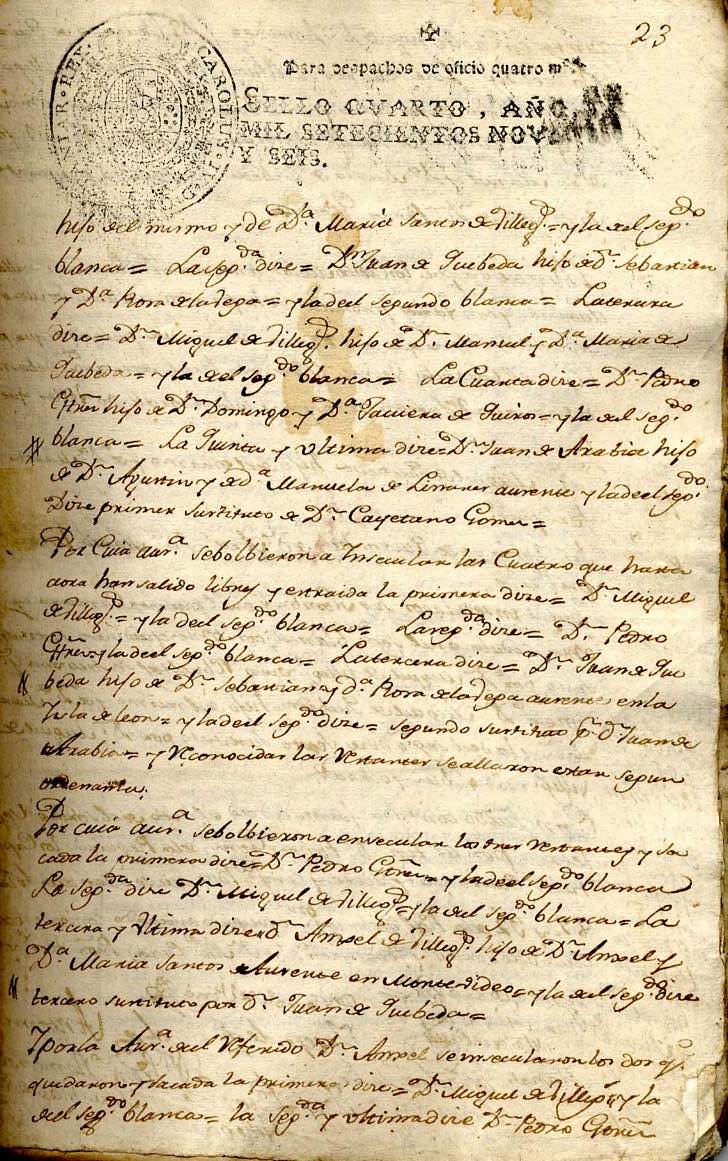 23
Para despachos de oficio quatro mrs.
SELLO QVARTO, AÑO
MIL SETECIENTOS NOVENTA
Y SEIS.
CAROLUS II D G REX
hijo del mismo y de Dª Maria Santos de Villegs = y la del segdo
blanca = La segda dice = Dn Juan de Quebeda hijo de Dn Sebastian
y Dª Rosa de la Vega = y la del segundo blanca = La tercera
dice = Dn Miguel de Villegs hijo de Dn Manuel y Dª Maria de
Quebeda = y la del segdo blanca = La Cuarta dice = Dn Pedro
Gtrres hijo de Dn Domingo y Dª Javiera de Quiros = y la del segdo
blanca = La Quinta y Ultima dice = Dn Juan de Arabia hijo
de Dn Agustin y de Dª Manuela de Linares ausente y la del segdo
Dice primer sustituto de Dn Cayetano Gomez =
Por Cuia ausª se bolbieron a Insecular las Cuatro que hasta
aora han salido libres y extraida la primera dice = Dn Miguel
de Villegs = y la del segdo blanca = La segda dice = Dn Pedro
Gtrres y la del segdo blanca = La tercera dice = Dn Juan de Que
beda hijo de Dn Sebastian y Dª Rosa de la Vega ausente en la
Isla de Leon = y la del segdo dice = segundo sustituto pr Dn Juan de
Arabia = y Reconocidas las Restantes se allaron estar segun
ordenanza.
Por cuia ausª se bolbieron a ensecular los tres Restantes y sa
cada la primera dice = Dn Pedro Gtrres = y la del segdo blanca
La segda dice Dn Miguel de Villegs = y la del segdo blanca = La
tercera y Ultima dice Dn Anxel de Villegs hijo de Dn Anxel y
Dª Maria Santos Ausente en Montevideo = y la del segdo dice
tercero sustituto por Dn Juan de Quebeda =
Y por la Ausª del Referido Dn Anxel se insecularon los dos qe
quedaron y sacada la primera dice = Dn Miguel de Villegs y la
del segdo blanca = la segda y ultima dice Dn Pedro Gtrres